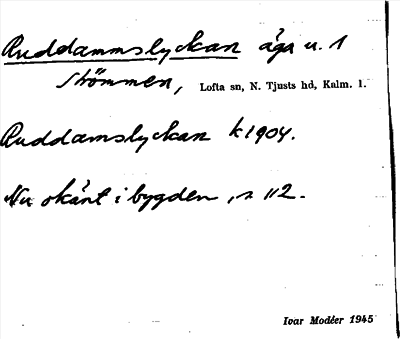 Ruddammslyckan äga u. 1
Strömmen, Lofta sn, N. Tjusts hd, Kalm. l.
Ruddamslyckan k 1904.
Nu okänt i bygden, s 112.
Ivar Modéer 1945